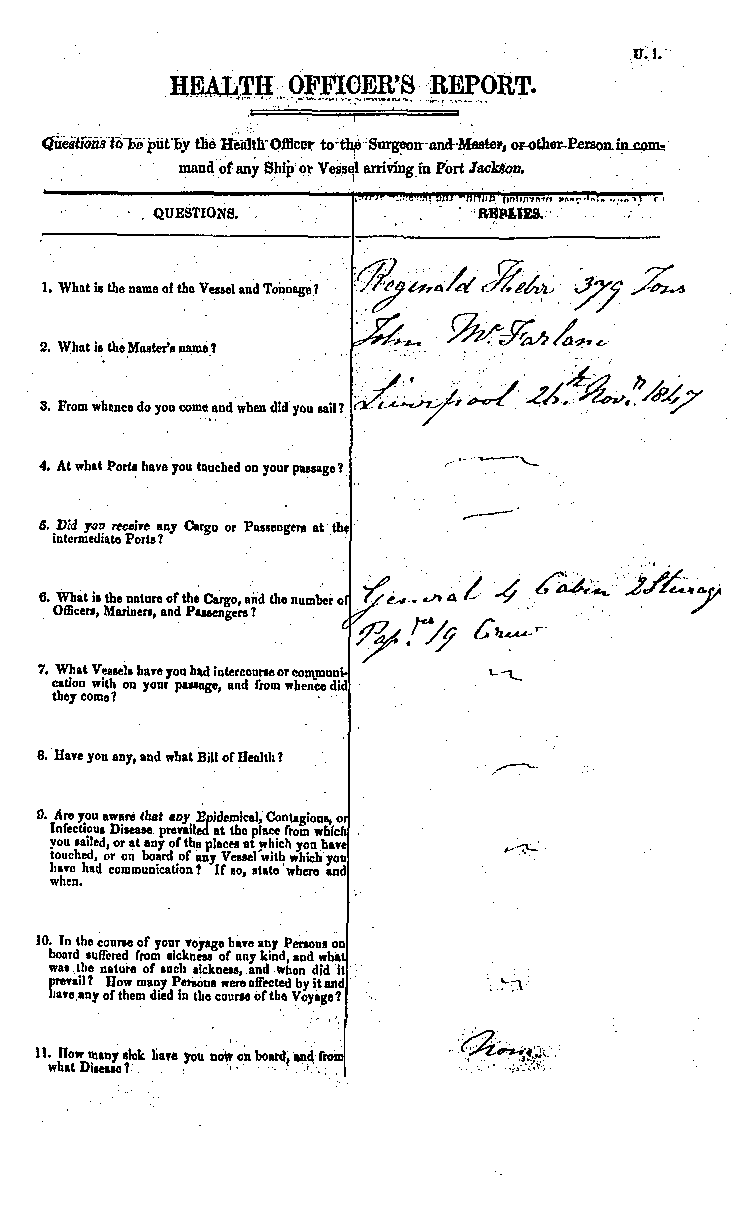 U. 1.
HEALTH OFFICER'S REPORT.
Questions to be put by the Health Officer to the Surgeon and Master, or other Person in com-
mand of any Ship or Vessel arriving in Port Jackson.
QUESTIONS.
REPLIES.
1. What is the name of the Vessel and Tonnage?
Reginald Heber 379 Tons
2. What is the Master's name?
John McFarlane
3. From whence do you come and when did you sail?
Liverpool 24th Novr. 1847
4. At what Ports have you touched on your passage?
5. Did you receive any Cargo or Passengers at the
intermediate Ports?
6. What is the nature of the Cargo, and the number of
Officers, Mariners, and Passengers?
General 4 Cabin 2 Steerage
19 Crew
7. What Vessels have you had intercourse or communi-
cation with on your passage, and from whence did
they come?
8. Have you any, and what Bill of Health?
9. Are you aware that any Epidemical, Contagious, or
Infectious Disease prevailed at the place from which
you sailed, or at any of the places at which you have
touched, or on board of any Vessel with which you
have had communication? If so, state where and
when.
10. In the course of your voyage have any Persons on
board suffered from sickness of any kind, and what
was the nature of such sickness, and when did it
prevail? How many Persons were affected by it and
have any of them died in the course of the Voyage?
11. How many sick have you now on board, and from
what Disease?
None